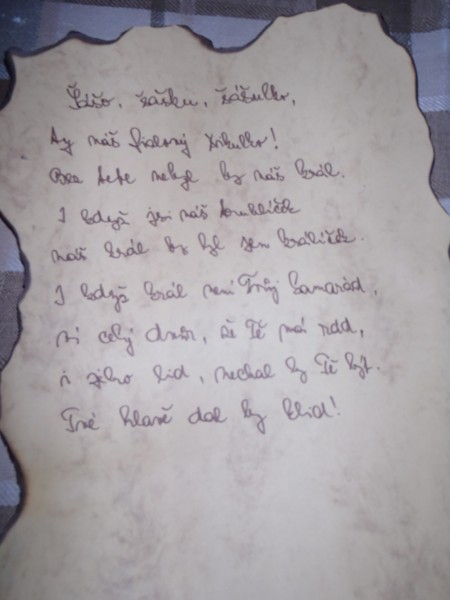 Šášo, šašku, šášulko,
Ty náš
Bez Tebe nebyl by náš král.
I když jsi náš truhlíček
náš král by byl jen králíček.
I když král není Tvůj kamarád,
ví celý dvůr, že Tě má rád,
i jeho lid, nechal by Tě být.
Tvé hlavě dal by klid!